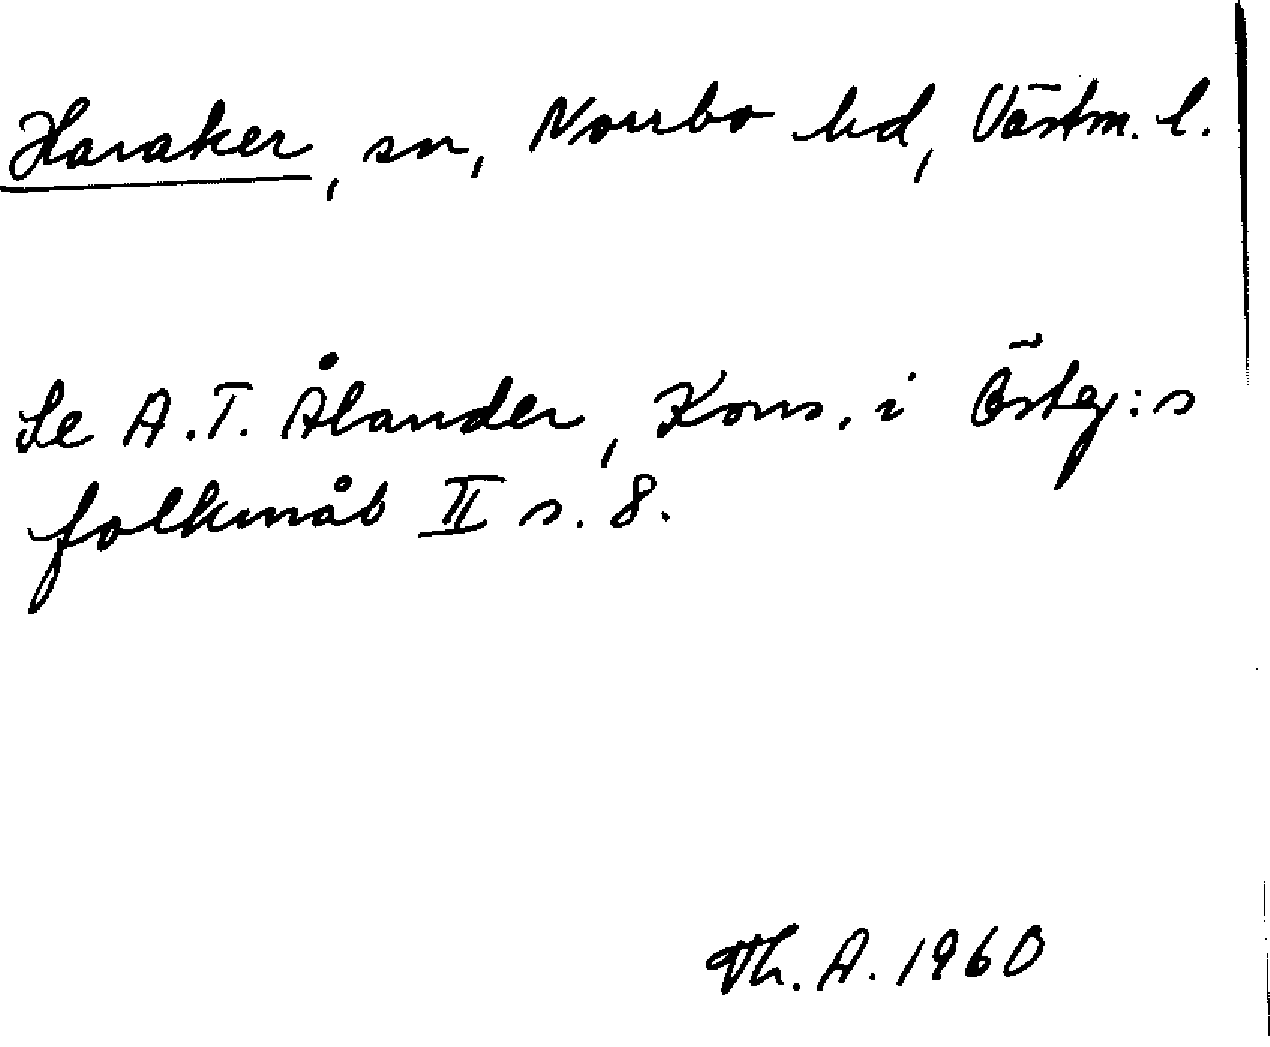 Haraker, sn, Norrbo hd, Västm. l.
Se A.T. Ålander, Kons. i Östg:s
folkmål II s. 8.
Th. A. 1960